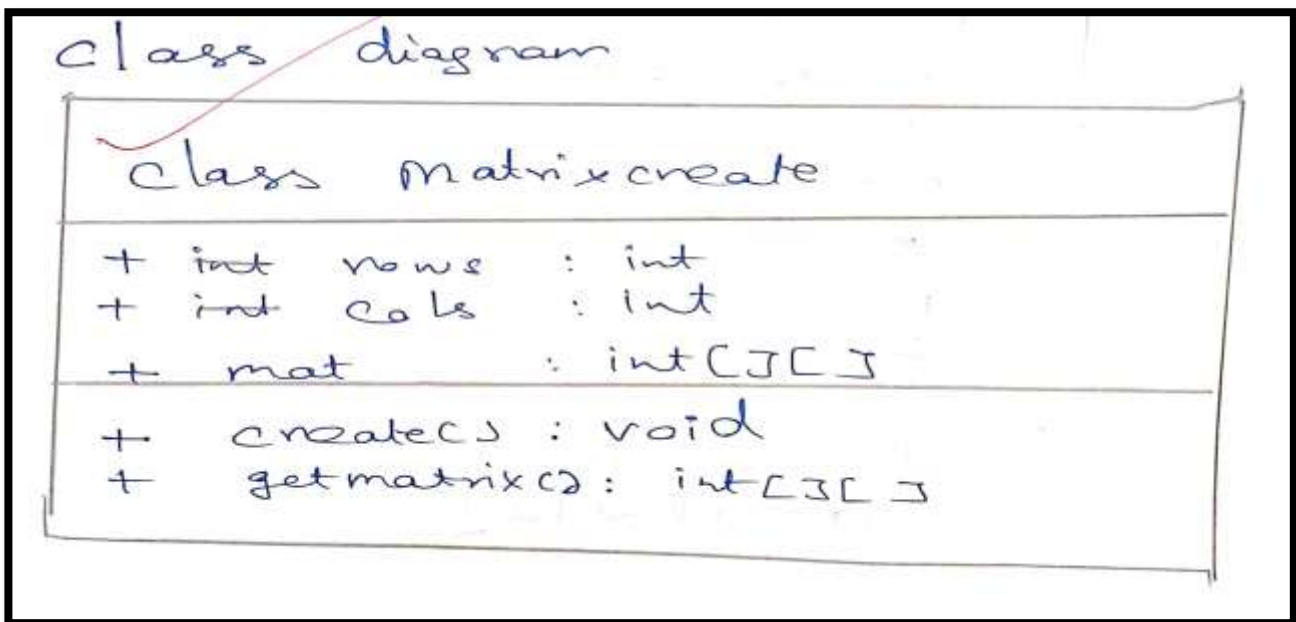 class diagram
class matrixcreate
+ int rows : int
+ int cols : int
+ mat : int[][]
+ create() : void
+ getmatrix() : int[][]